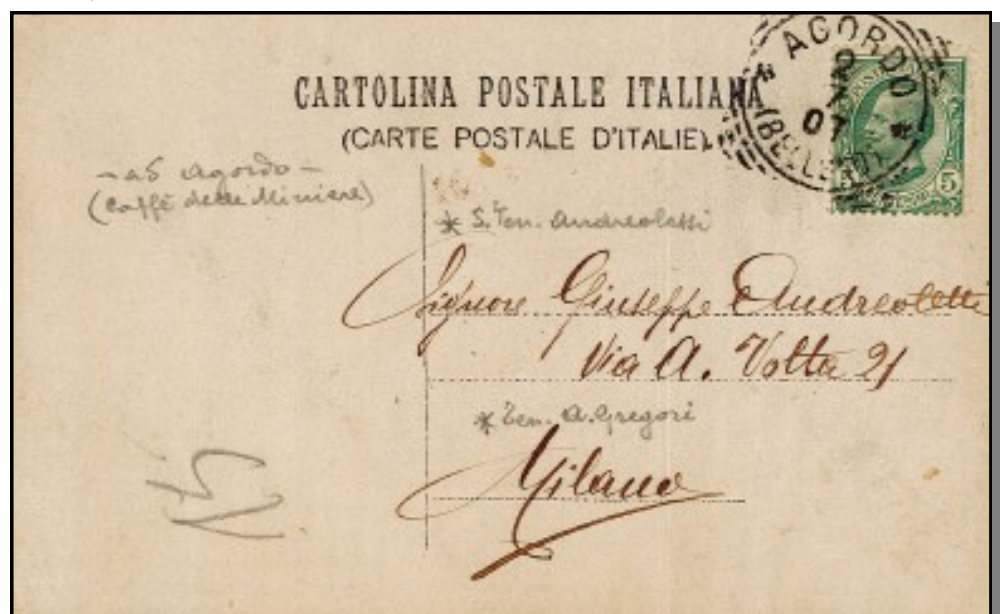 CARTOLINA POSTALE ITALIANA
(CARTE POSTALE D'ITALIE)
AGORDO
2
7
07
(BELLUNO)
5
- a S Agordo -
(Caffè delle Miniere)
* S. Ten. Andreoletti
Signore Giuseppe Andreoletti
Via A. Volta 21
* Ten. A. Gregori
Milano